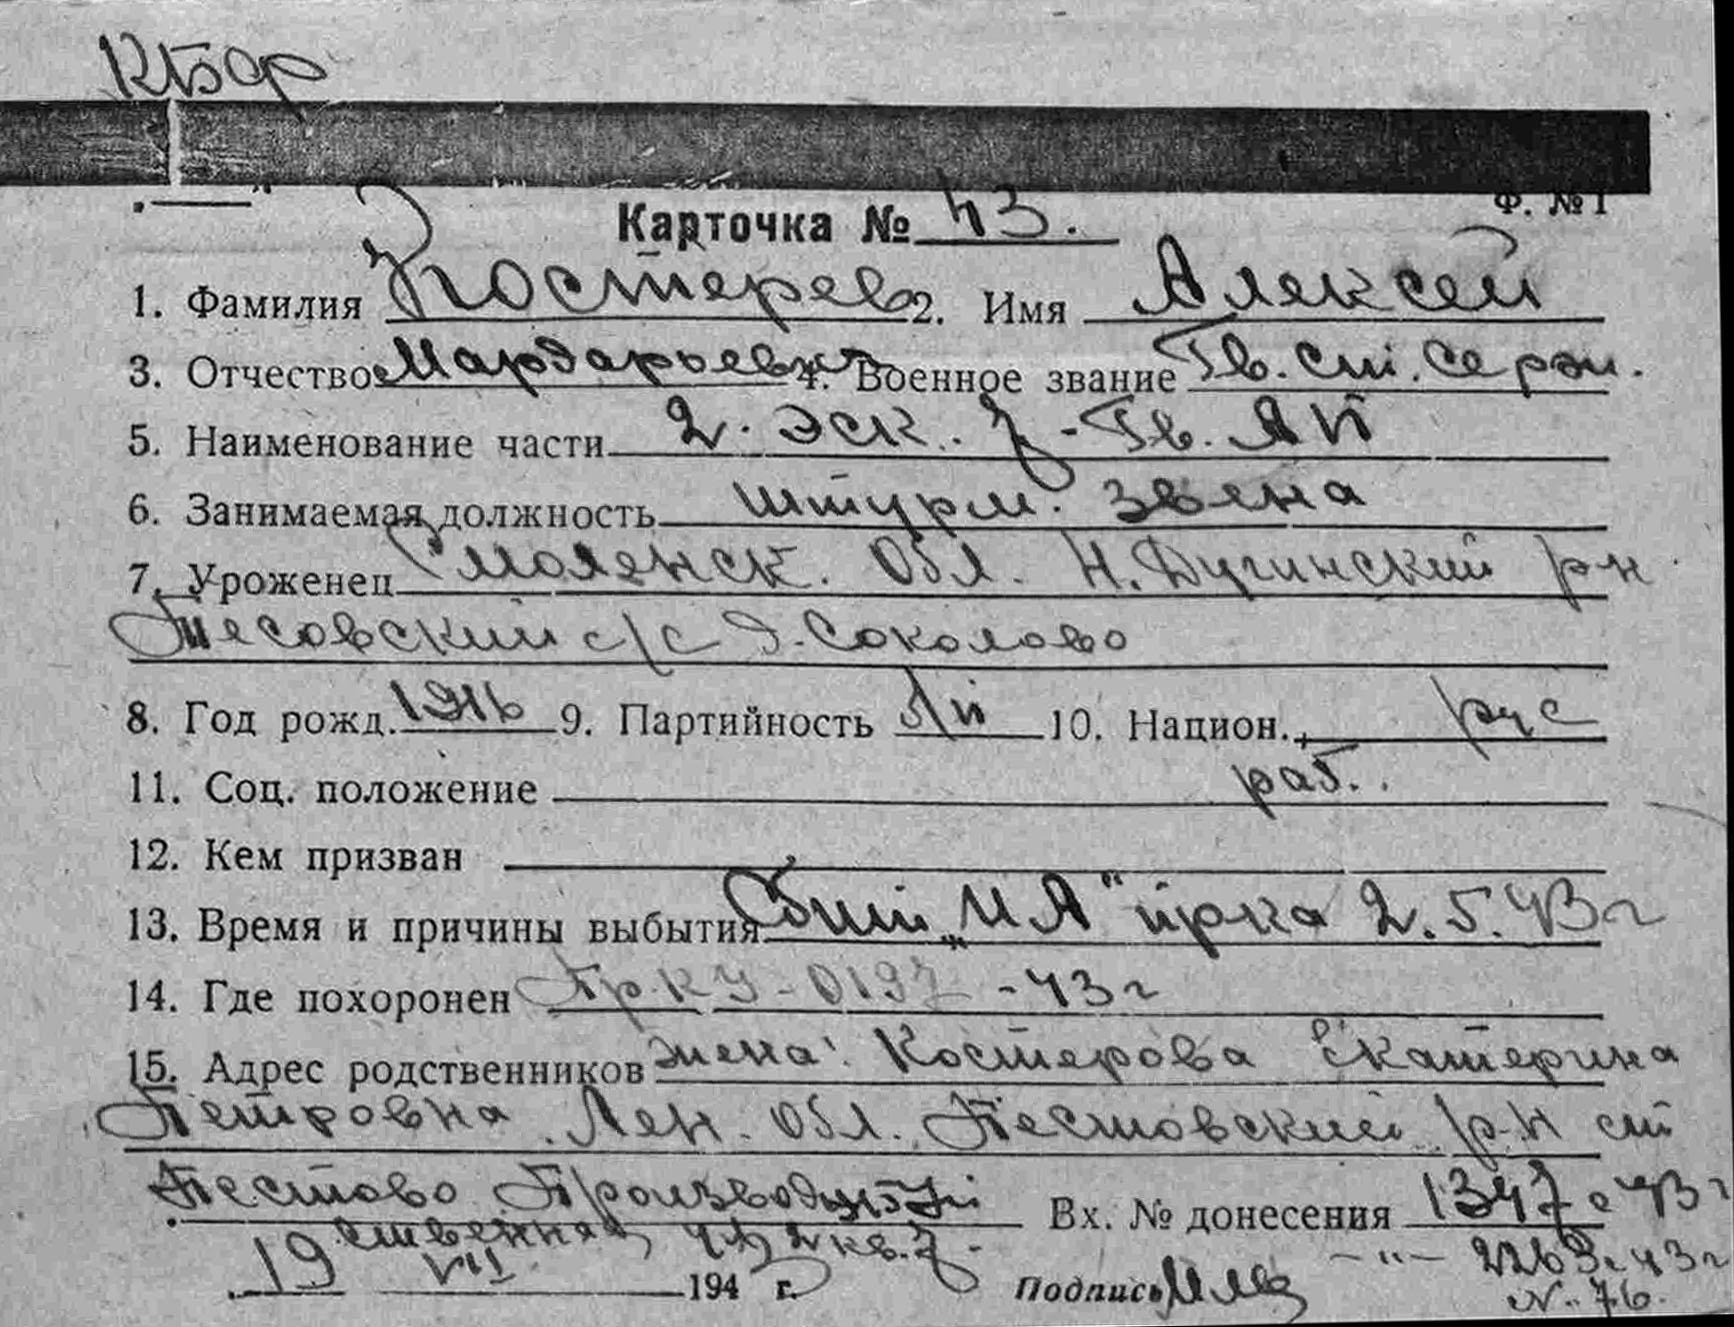 КБФ
Ф. № 1
Карточка № 43.
1. Фамилия Костерев 2. Имя Алексей
3. Отчество Мардарьевич 4. Военное звание Гв. ст. серж.
5. Наименование части 2. эск. 7-Гв. АП
6. Занимаемая должность штурм. звена
7. Уроженец Смоленск. обл. Н. Дугинский р-н
Тесовский с/с д. Соколово
8. Год рожд. 1916 9. Партийность б/п 10. Национ. рус
11. Соц. положение раб.
12. Кем призван
13. Время и причины выбытия Сбит „ИА" пр-ка 2.5.43 г
14. Где похоронен Пр. КУ-0197-43 г
15. Адрес родственников жена: Костерова Екатерина
Петровна. Лен. обл. Пестовский р-н ст
Пестово Производ Вх. № донесения 1347с 43 г
ственная кв. 7. -"- 2263с 43 г
19 VII 194 г. Подпись N. 76.